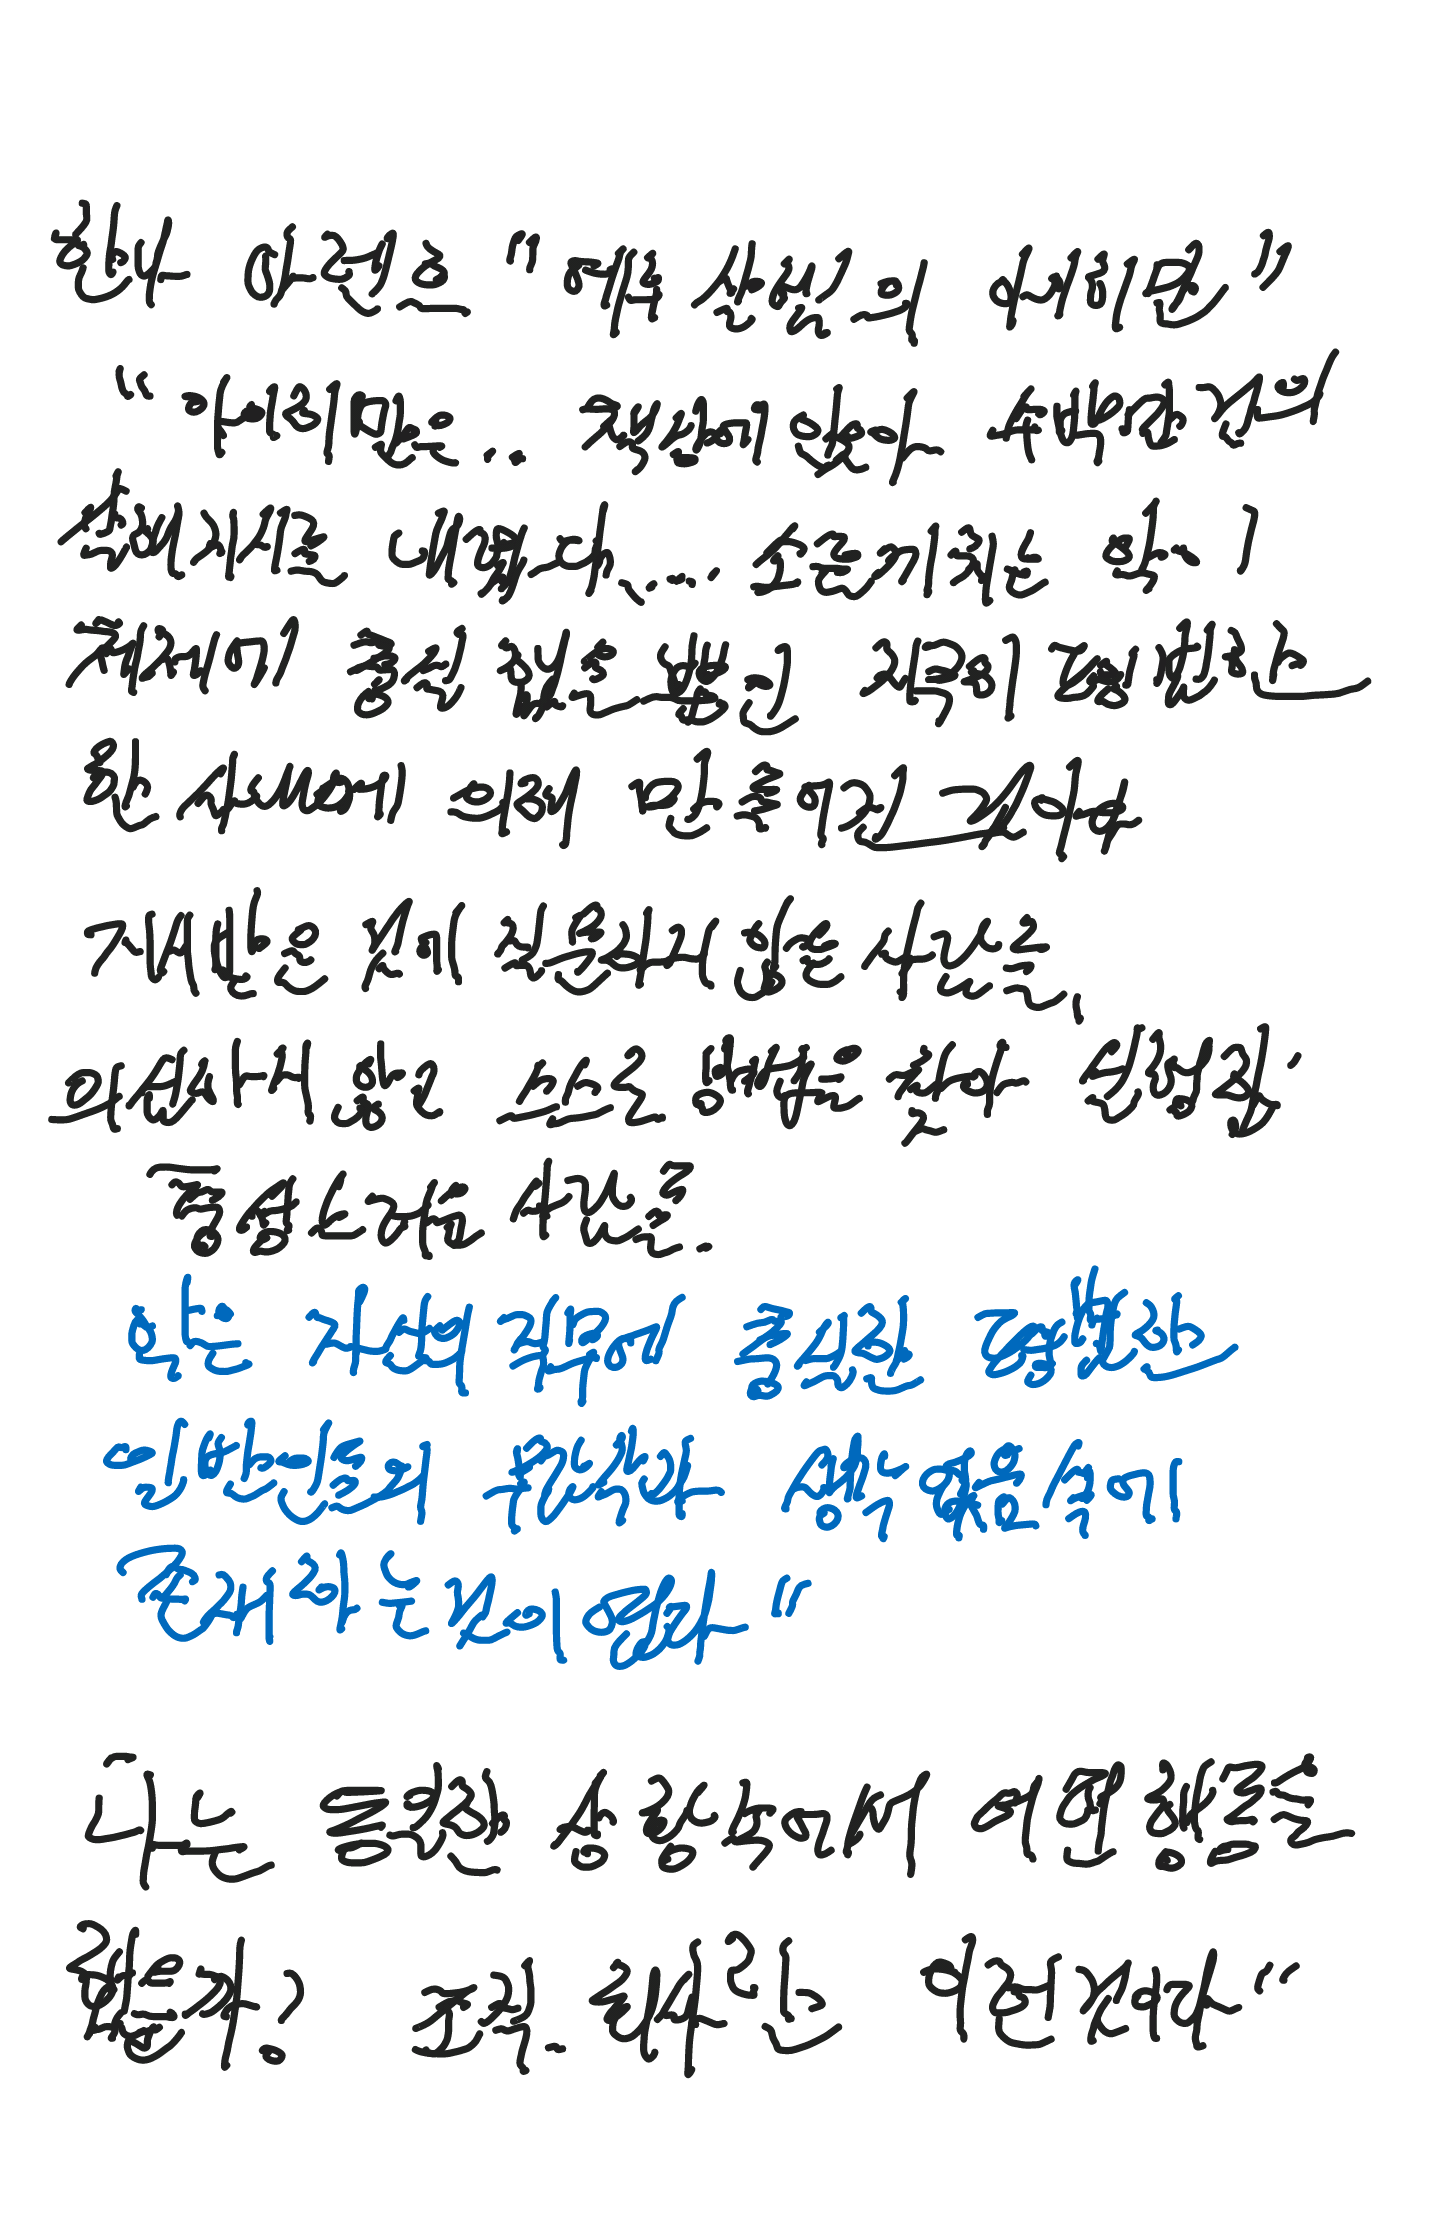 한나 아렌트 "예루살렘의 아이히만"
"아이히만은... 책상에 앉아 수백만 건의
살해지시를 내렸다..... 소름끼치는 악이
철저히 충실했을 뿐인 지극히 평범한
한 사내에 의해 만들어진 것이다
개발은 것에 질문하지 않는 사람들,
의심하지 않고 스스로 방법을 찾아 실행할
충성스러운 사람들.
악은 자신의 직무에 충실한 평범한
일반인들의 무관심과 생각없음 속에
존재하는 것이었다"
나는 동일한 상황속에서 어떤 행동을
했을까? 조직. 회사란 이런것이다"